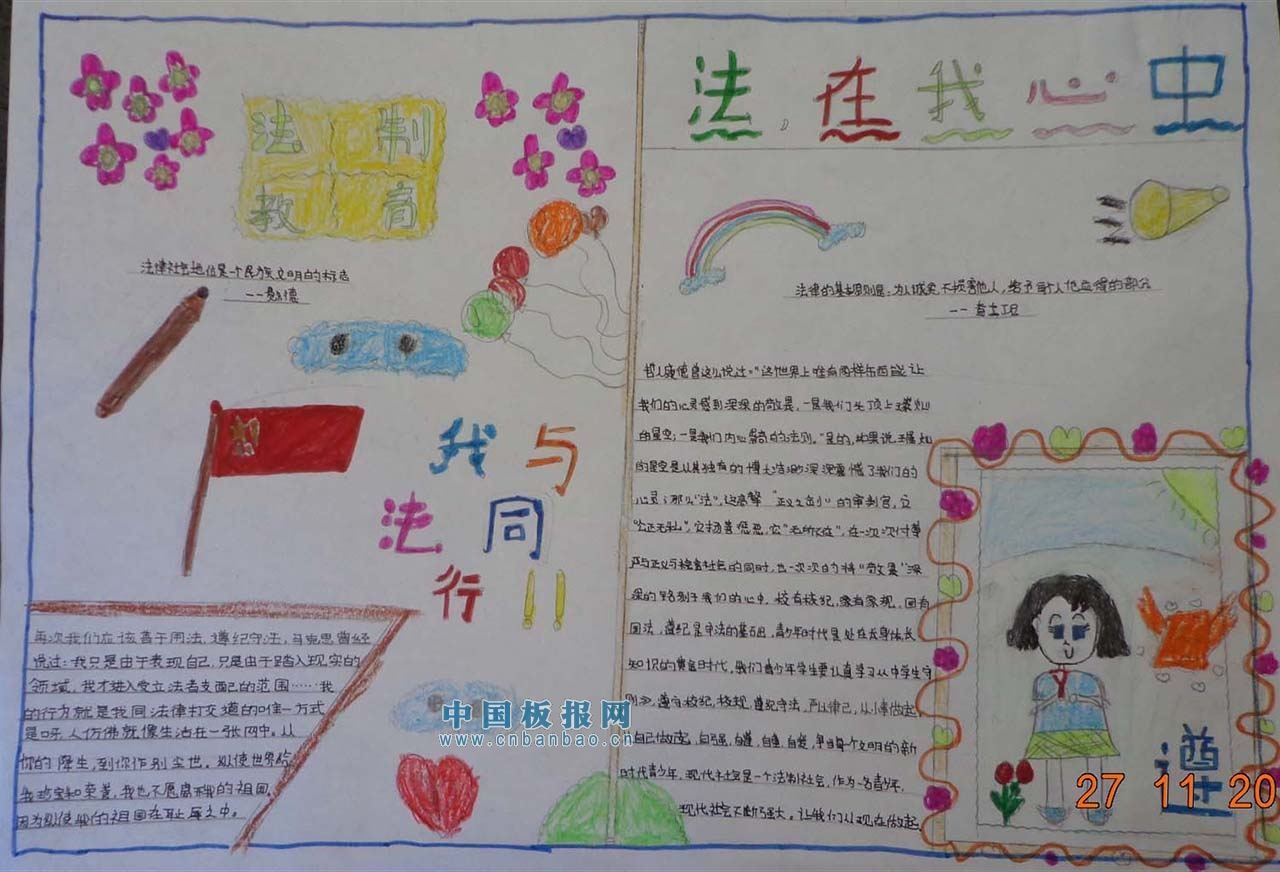 法制
教育
法律社会地位是一个民族文明的标志
——勒德
我与
法同
行!!
再次我们应该善于用法,遵纪守法,马克思曾经
说过:我只是由于表现自己,只是由于踏入现实的
领域,我才进入受立法者支配的范围……我
的行为就是我同法律打交道的唯一方式
是呀,人仿佛就像生活在一张网中。从
你的降生,到你作别尘世。纵使世界给
我珍宝和荣誉,我也不愿离开我的祖国。
因为纵使我的祖国在耻辱之中。
法,在我心中
法律的基本原则是:为人诚实,不损害他人,给予每个人他应得的部分
——查士丁尼
哲人康德曾这么说过:"这世界上唯有两样东西能让
我们的心灵感到深深的敬畏,一是我们头顶上璀灿
的星空,一是我们内心崇高的法则。"是的,如果说,璀灿
的星空是以其独有的博大浩渺深深震慑了我们的
心灵;那么"法",这高擎"正义之剑"的审判官,它
"公正无私",它扬善惩恶,它"无所不在",在一次次付事
严与正义与稳定社会的同时,也一次次的将"敬畏"深
深的铭刻于我们的心中,校有校纪,家有家规,国有
国法,遵纪是守法的基石,青少年时代是处在长身体长
知识的黄金时代,我们青少年学生要认真学习从中学生守
则,遵守校纪,校规,遵纪守法,严以律己,从小事做起,
自己做起,自强,自尊,自重,自爱,争当每个文明的新
时代青少年,现代社会是一个法制社会,作为一名青少年,
现代社会不断强大。让我们从现在做起
遵
中国板报网
www.cnbanbao.cn
27 11 20